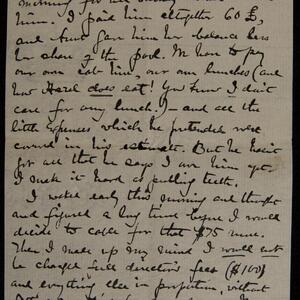 him. I paid him altogether 60 £,
and Aunt gave him her balance less
her share of the pool. We have to pay
our own cab hire, our own lunches (and
how Hazel does eat! You know I don't
care for any lunch!) — and all the
little expenses which he pretended were
covered in his estimate. But he hasn't
for all that he says I owe him yet.
I make it hard as pulling teeth.
I waked early this morning and thought
and figured a long time before I would
decide to cable for that $75 more.
Then I made up my mind I would not
be charged full director's fees ($100)
and everything else in proportion, without